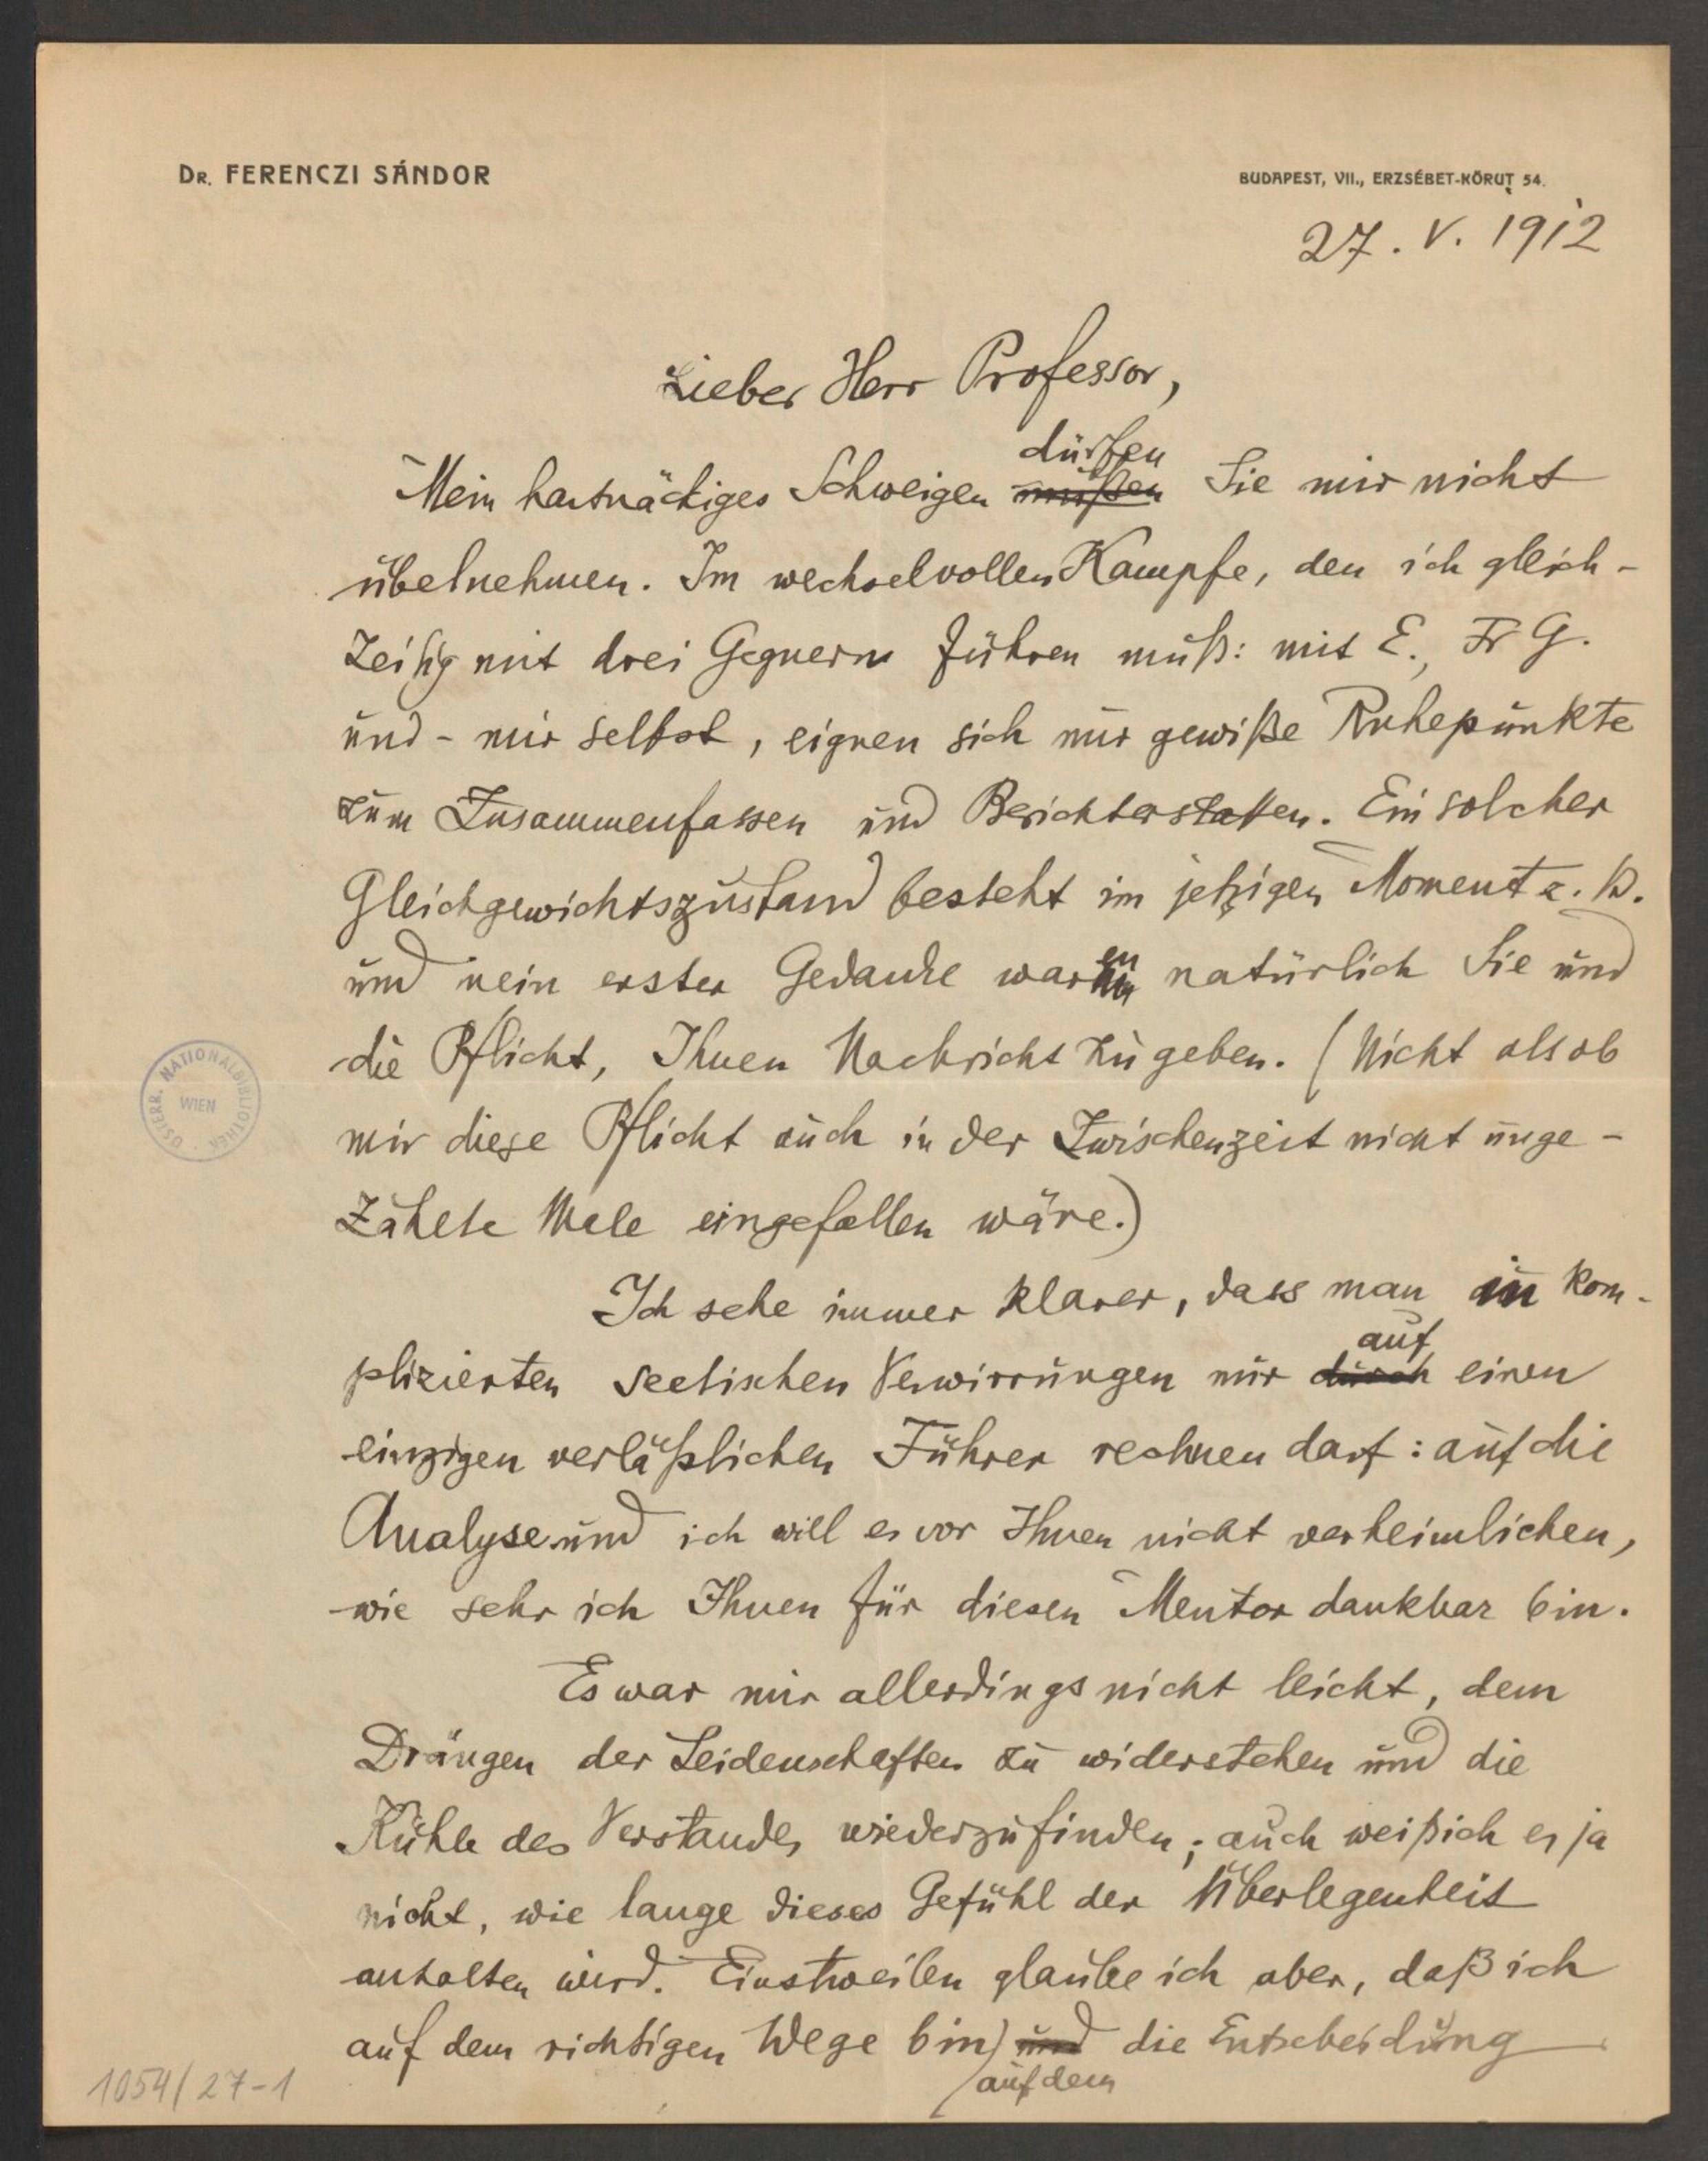 Dr. FERENCZI SÁNDOR
BUDAPEST, VII., ERZSÉBET-KÖRUT 54.
27. V. 1912
Lieber Herr Professor,
dürfen
Mein hartnäckiges Schweigen müßen Sie mir nicht
übelnehmen. Im wechselvollen Kampfe, den ich gleich-
zeitig mit drei Gegnern führen muß: mit E., Fr G.
und - mir selbst, eignen sich nur gewiße Ruhepunkte
zum Zusammenfassen und Berichterstatten. Ein solcher
Gleichgewichtszustand besteht im jetzigen Moment z. B.
und mein erster Gedanke waren natürlich Sie und
die Pflicht, Ihnen Nachricht zu geben. (Nicht als ob
mir diese Pflicht auch in der Zwischenzeit nicht unge-
zählte Male eingefallen wäre.)
Ich sehe immer klarer, dass man in kom-
auf
plizierten seelischen Verwirrungen nur durch einen
einzigen verläßlichen Führer rechnen darf: auf die
Analyse und ich will es vor Ihnen nicht verheimlichen,
wie sehr ich Ihnen für diesen Mentor dankbar bin.
Es war mir allerdings nicht leicht, dem
Drängen der Leidenschaften zu widerstehen und die
Kühle des Verstandes wiederzufinden; auch weiß ich es ja
nicht, wie lange dieses Gefühl der Überlegenheit
anhalten wird. Einstweilen glaube ich aber, daß ich
auf dem richtigen Wege bin) und die Entscheidung
auf dem
ÖSTERR. NATIONALBIBLIOTHEK
WIEN
1054/27-1